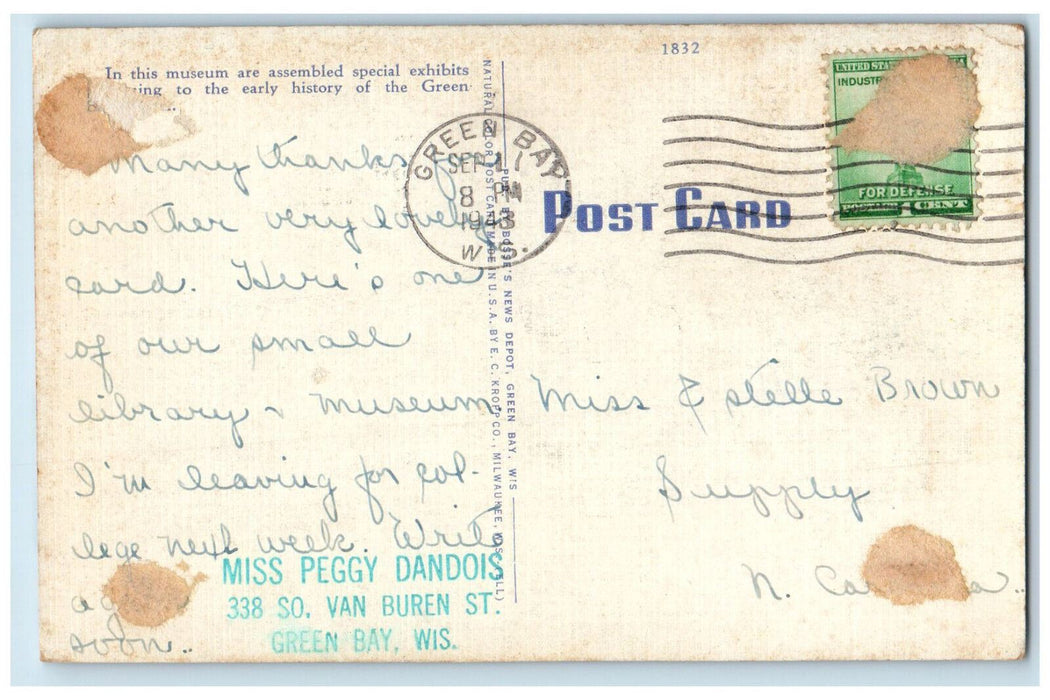 In this museum are assembled special exhibits
to the early history of the Green
Many thanks
another very lovely
card. Here's one
of our small
library & museum
I'm leaving for col-
lege next week. Write
soon..
MISS PEGGY DANDOIS
338 SO. VAN BUREN ST.
GREEN BAY, WIS.
NATURAL COLOR POST CARD MADE IN U.S.A. BY E. C. KROPP CO., MILWAUKEE, WIS.
BOSSE'S NEWS DEPOT, GREEN BAY, WIS
GREEN BAY
SEP
8 PM
1943
WIS.
1832
UNITED STATES
FOR DEFENSE
1 CENT
POST CARD
Miss Estelle Brown
Supply
N.